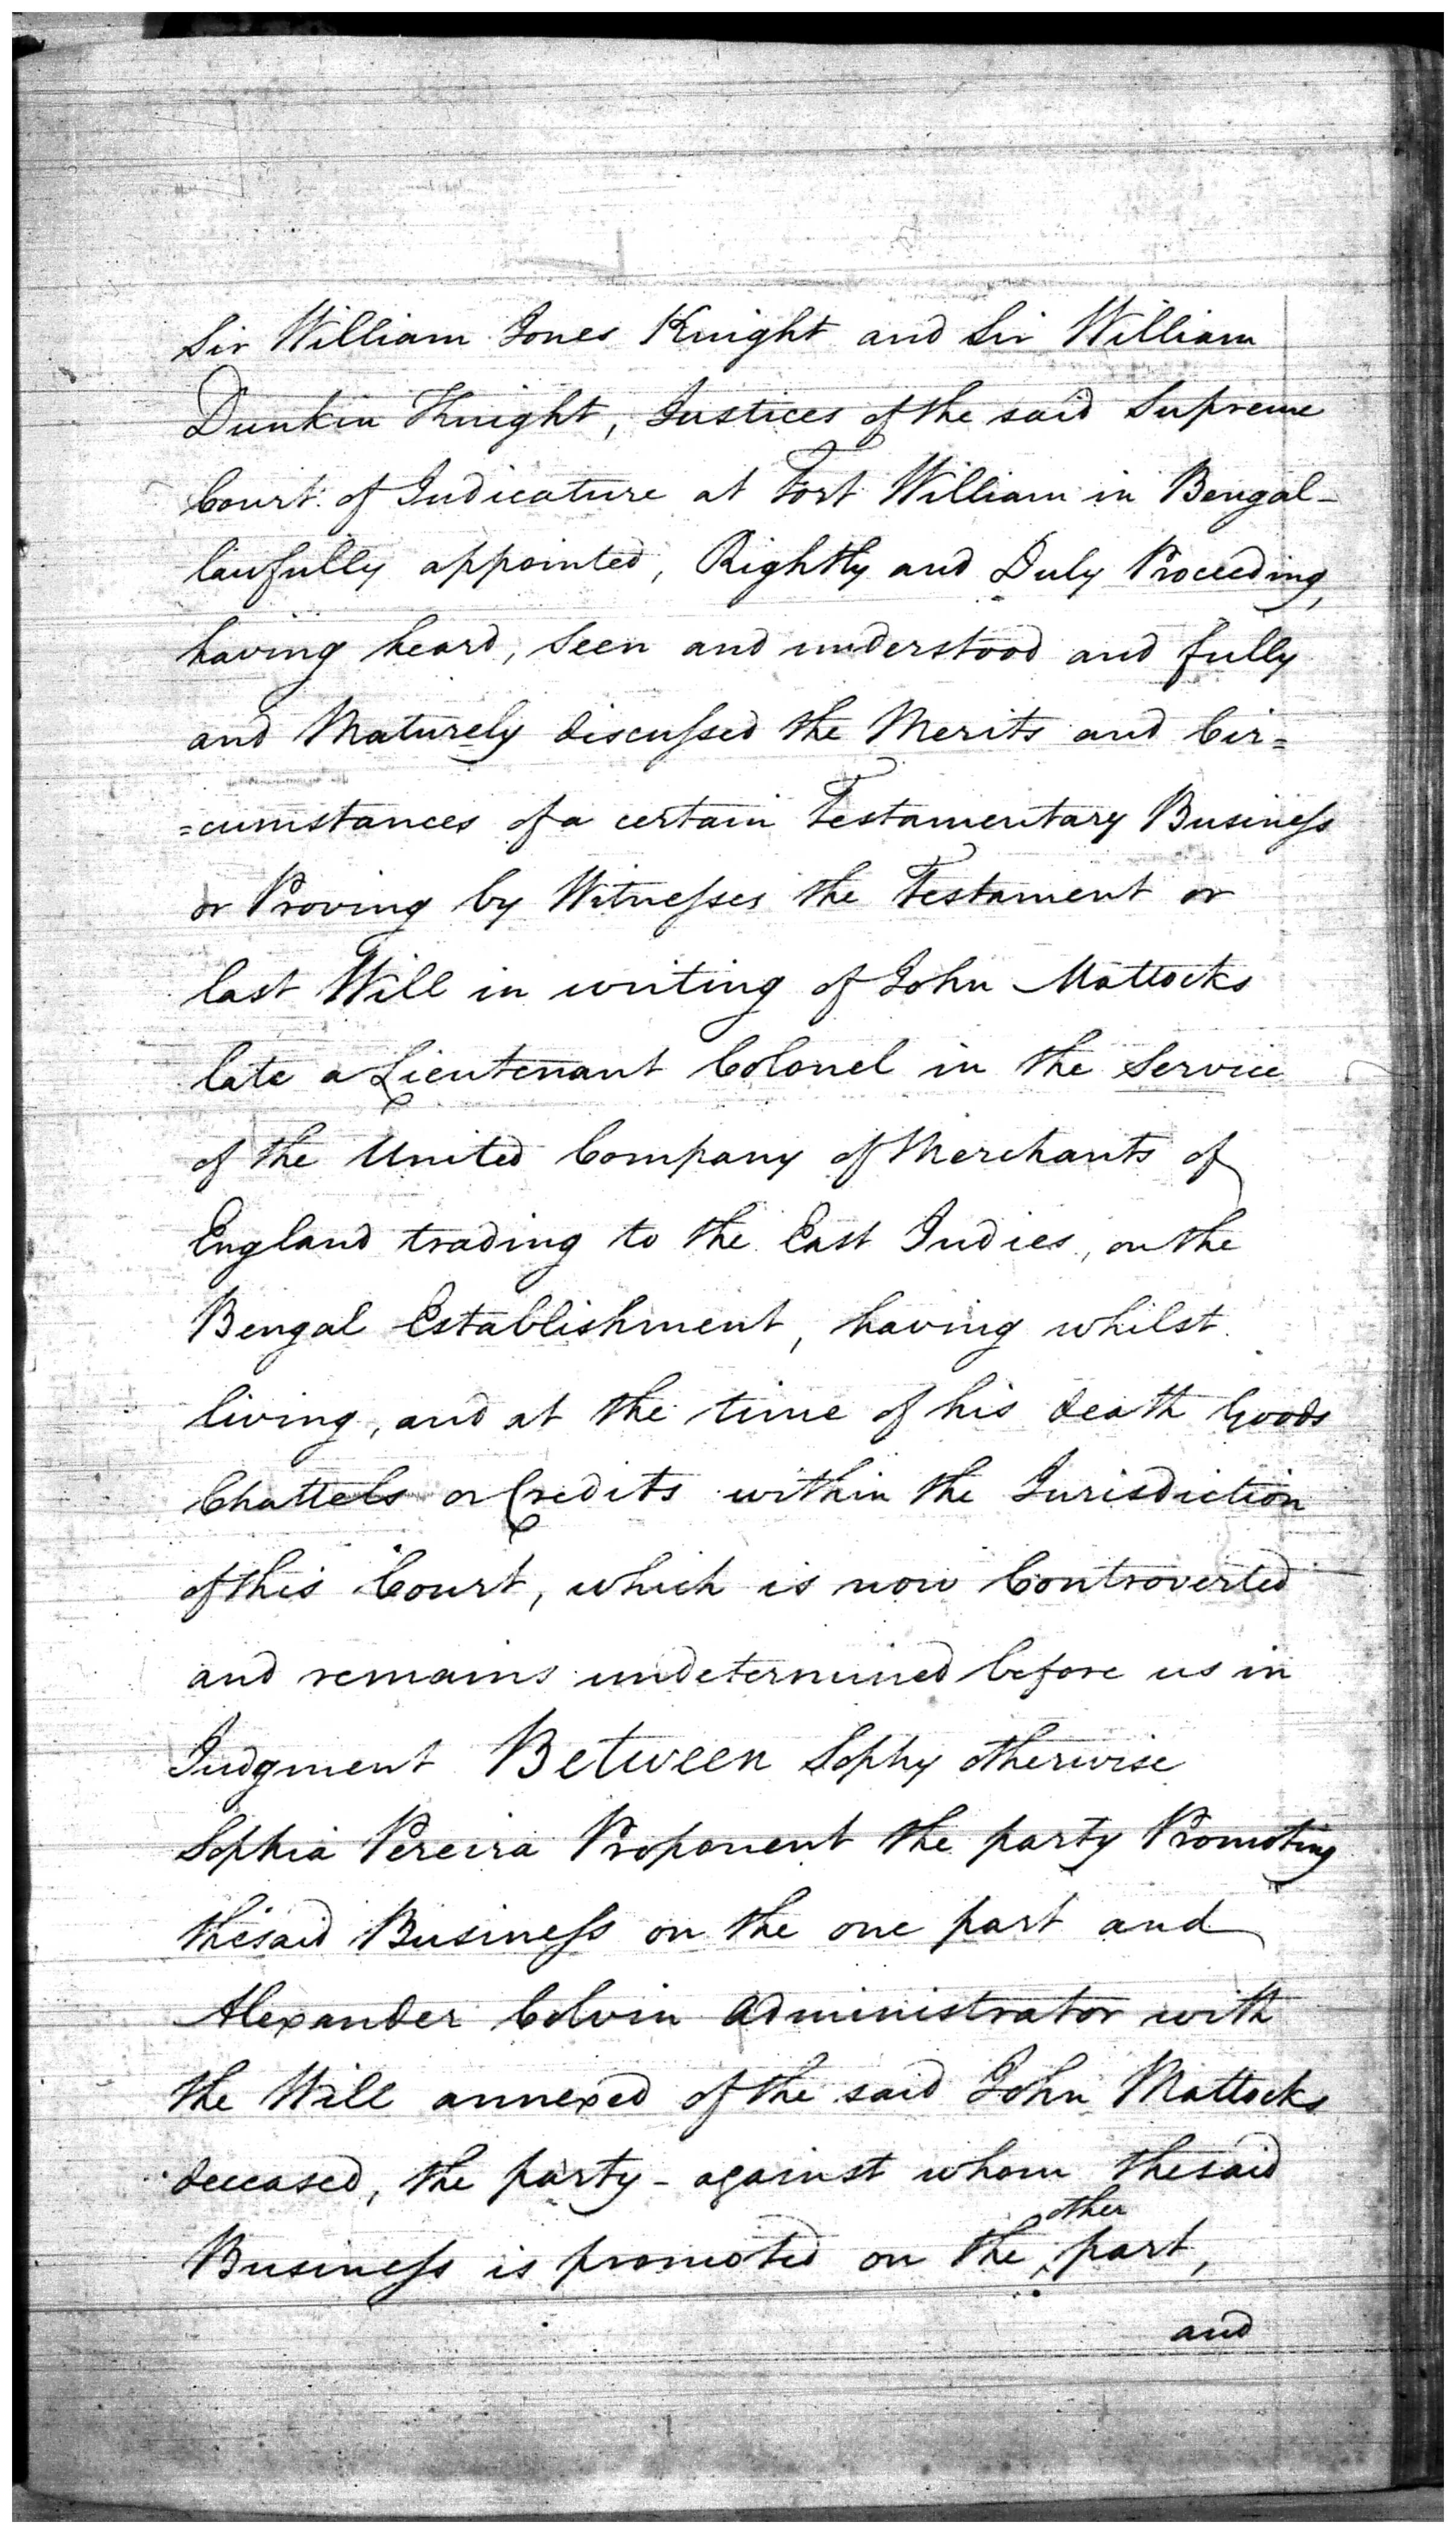 Sir William Jones Knight and Sir William
Dunkin Knight, Justices of the said Supreme
Court of Judicature at Fort William in Bengal-
lawfully appointed, Rightly and Duly Proceeding,
having heard, seen and understood and fully
and Maturely discufsed the Merits and Cir=
=cumstances of a certain Testamentary Businefs
or Proving by Witnefses the Testament or
last Will in writing of John Mattocks
late a Lieutenant Colonel in the Service
of the United Company of Merchants of
England trading to the East Indies, on the
Bengal Establishment, having whilst
living, and at the time of his death Goods
Chattels or Credits within the Jurisdiction
of this Court, which is now Controverted
and remains undetermined before us in
Judgment Between Sophy otherwise
Sophia Pereira Proponent the party Promoting
the said Businefs on the one part and
Alexander Colvin Administrator with
the Will annexed of the said John Mattocks
deceased, the party - against whom the said
Businefs is promoted on the other part,
and